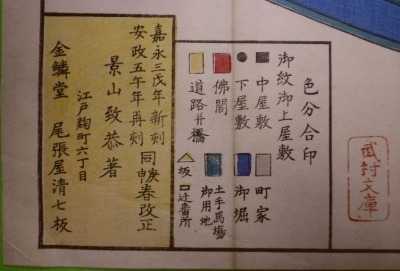 色分合印
御紋御上屋敷
中屋敷
下屋敷
佛閣
道路并橋
町家
御堀
土手馬場
御用地
坂
辻番所
嘉永三戊年新刻
安政五午年再刻
同 春改正
景山致恭著
江戸麹町六丁目
金鱗堂 尾張屋清七板
武村文庫